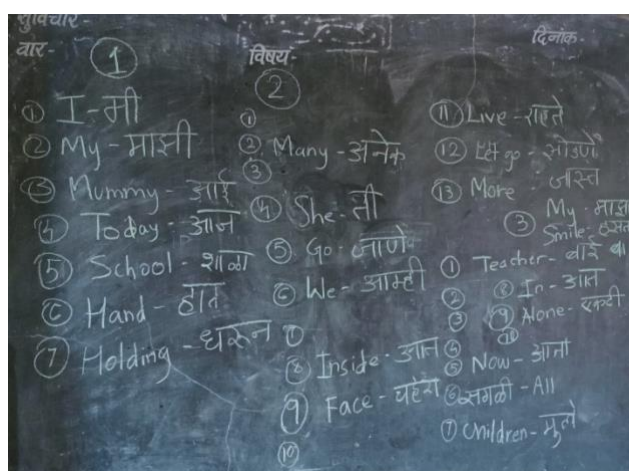 सुविचार
वार-
विषय-
दिनांक
①
① I - मी
② My - माझी
③ Mummy - आई
④ Today - आज
⑤ School - शाळा
⑥ Hand - हात
⑦ Holding - धरून
②
①
② Many - अनेक
③
④ She - ती
⑤ Go - जाणे
⑥ We - आम्ही
⑦
⑧ Inside - आत
⑨ Face - चहेरा
⑩
⑪ Live - राहते
⑫ Let go - सोडणे
⑬ More - जास्त
③
My - माझ
Smile - हसत
① Teacher - बाई
②
③
④
⑧ In - आत
⑨ Alone - एकटी
⑩
⑤ Now - आता
⑥ सगळी - All
⑦ Children - मुले